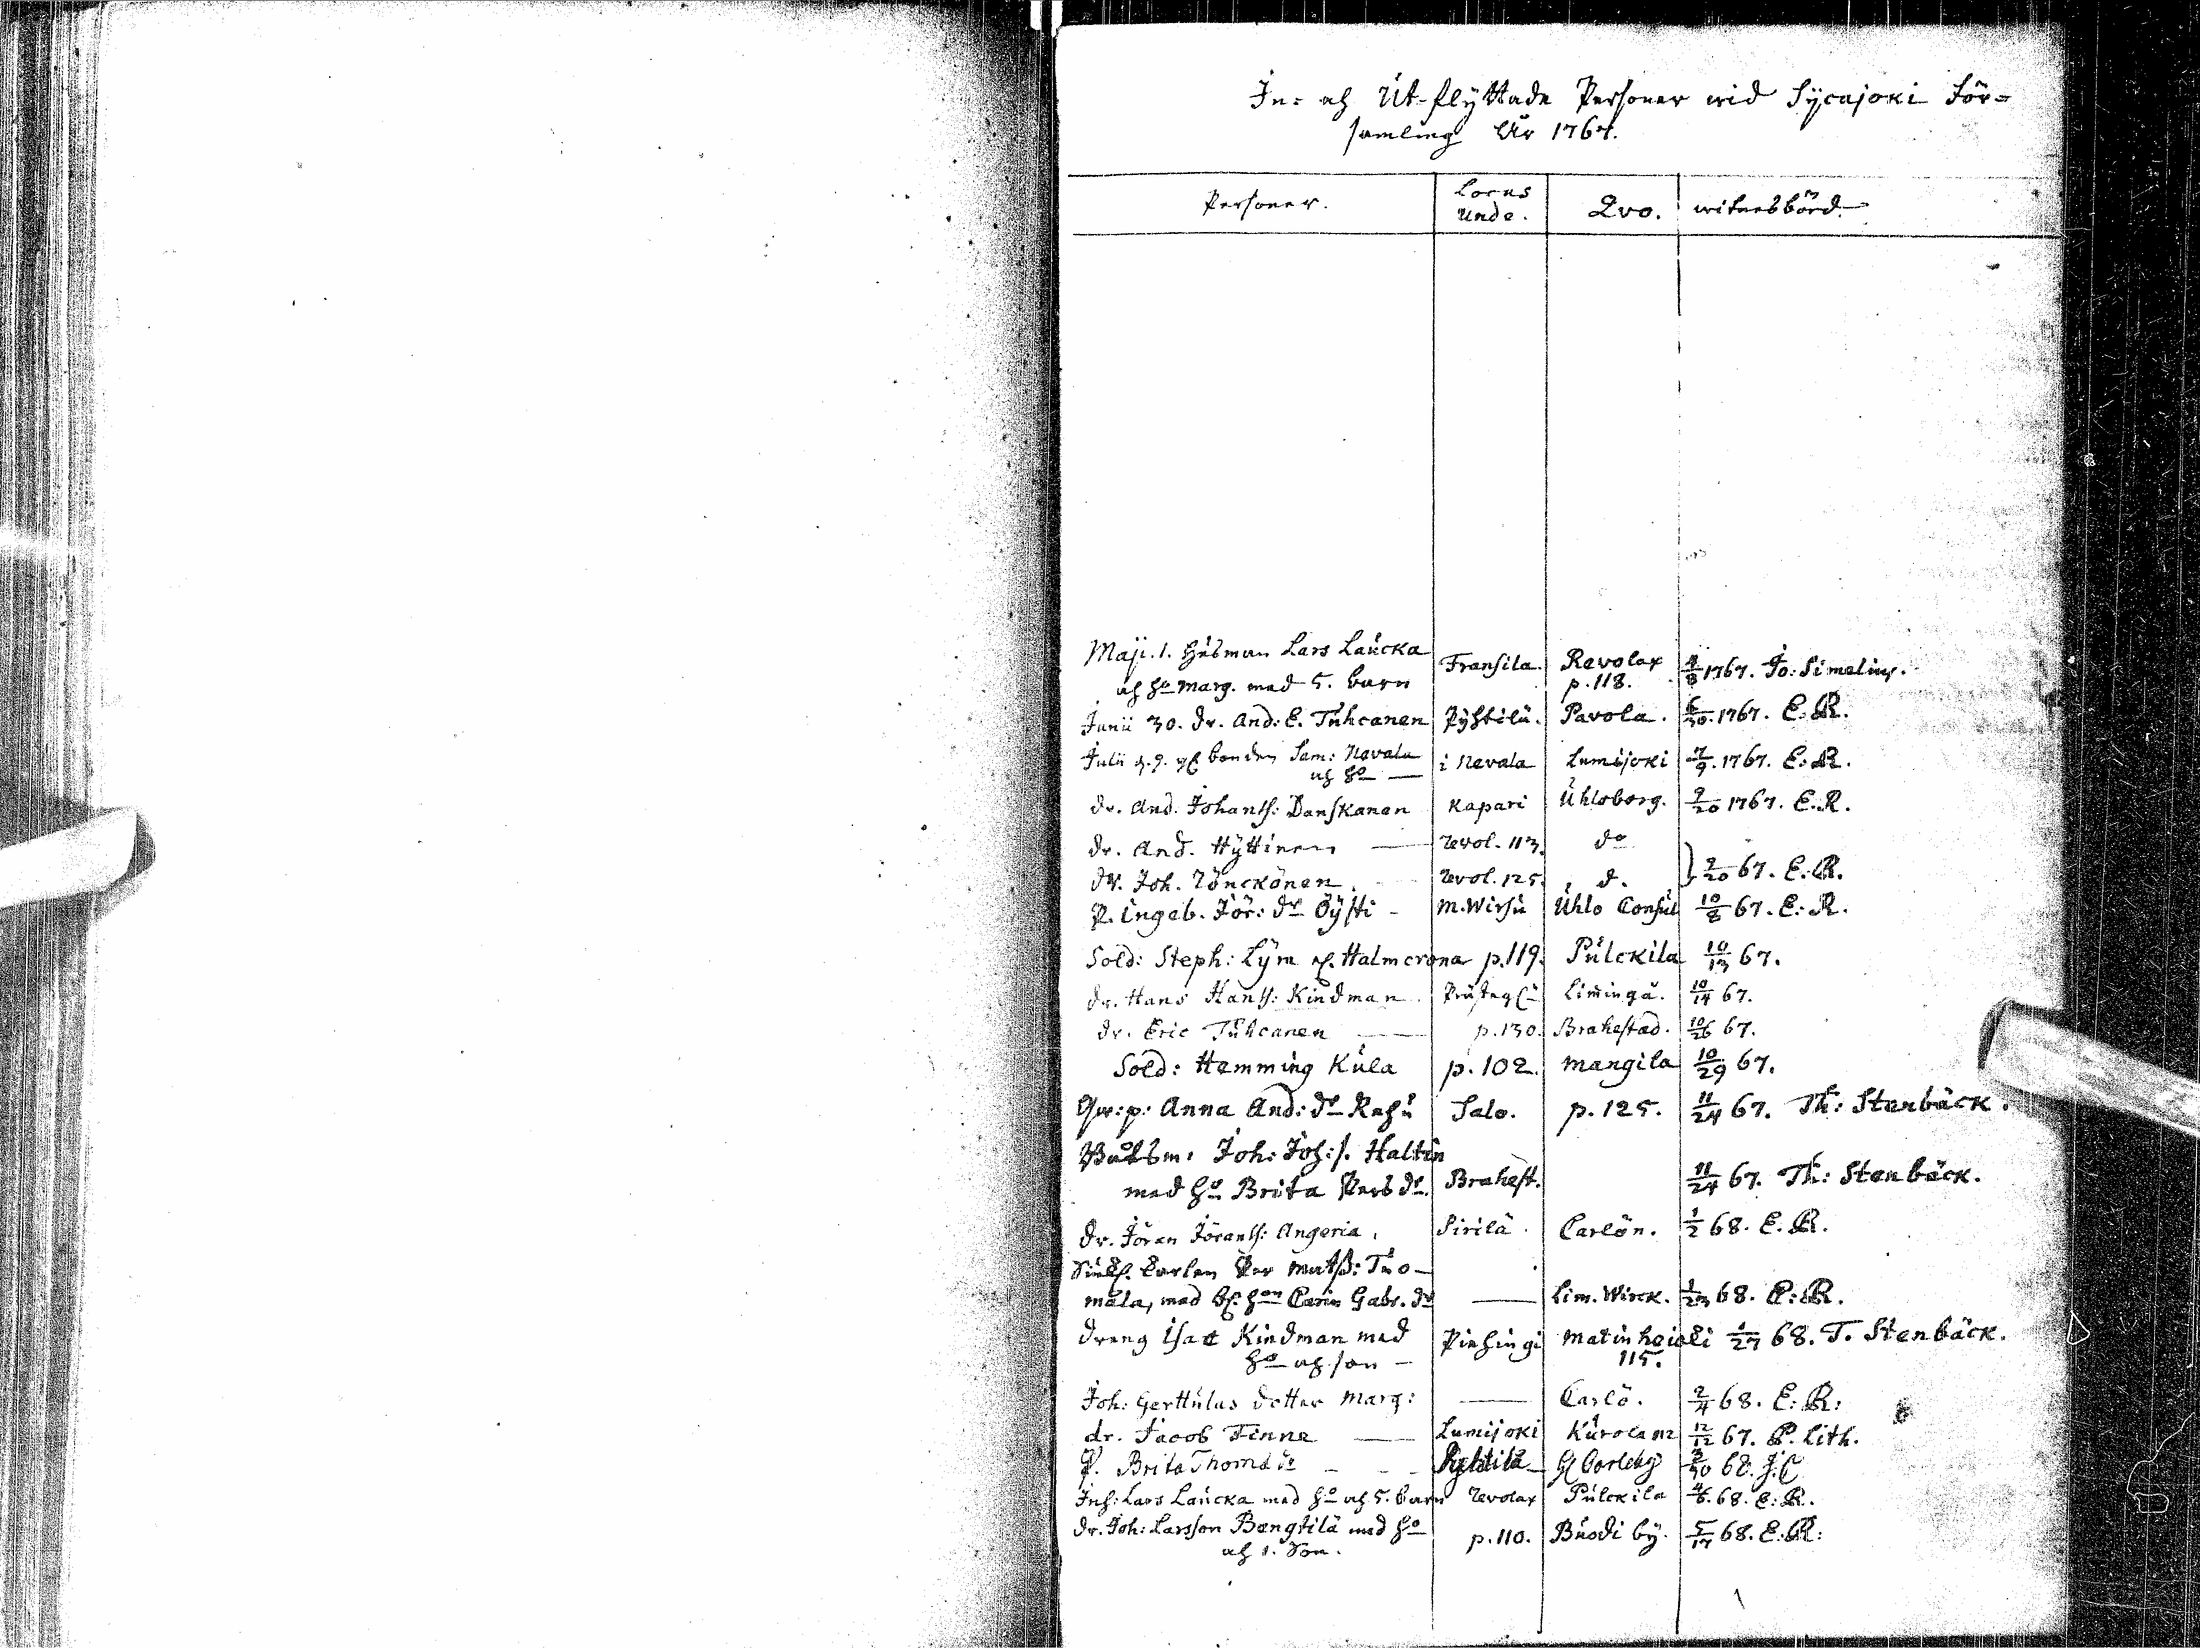 In- och Ut-flyttade Personer wid Sycajoki För=
samling År 1767.
Personer. Locus Unde. Qvo. witnesbörd.
Maji. 1. Husman Lars Laucka
och ho Marg. med 5. barn Fransila. Revolax p. 118. 4/8 1767. Jo: Simelius.
Junii 30. dr. And: E. Tuhcanen Pyhtilä. Pavola. 6/30. 1767. E: R.
Julii d. 9. bonden Sam: Nevala
och ho i Nevala Lumijoki 7/9. 1767. E: R.
dr. And. Johanss: Danskanen Kapari Uhloborg. 9/20 1767. E. R.
dr. And. Hyttinen Revol. 113. do
dr. Joh. Rönckönen. Revol. 125. d. } 9/20 67. E. R.
P. Ingeb. Jör: dr Öysti M. Wirsu Uhlo Consul 10/8 67. E: R.
Sold: Steph: Lym Halmcrona p. 119. Pulckila 10/13 67.
dr. Hans Hanss: Kindman. Limingå. 10/14 67.
dr. Eric Tuhcanen p. 130. Brahestad. 10/26 67.
Sold: Hemming Kula p. 102. Mangila 10/29 67.
Qw: p: Anna And: dr Rahu Salo. p. 125. 11/24 67. Th: Stenbäck.
Båtsm: Joh: Joh: s. Haltin
med ho Brita Pers dr. Brahest. 11/24 67. Th: Stenbäck.
dr. Jöran Jöranss: Angeria. Sirilä. Carlön. 1/2 68. E. R.
Karlen Per Matss: Tuo-
mala, med Carin Gabr. dr Lim. Wirck. 1/23 68. E: R.
dreng Isac Kindman med
ho och son Piehingi Matinheicki 115. 1/27 68. T. Stenbäck.
Joh: Gerttulas dotter Marg: Carlö. 2/4 68. E: R:
dr. Jacob Finne Lumijoki 12/12 67. P. Lith.
P. Brita Thomæ dr Pyhtilä Gl Carleby 3/30 68. J. C
Inh: Lars Laucka med ho och 5. barn Revolax Pulckila 4/6. 68. E: R.
dr. Joh: Larsson Bængtilä med ho
och 1. Son. p. 110. Buodi by. 5/17 68. E. R: